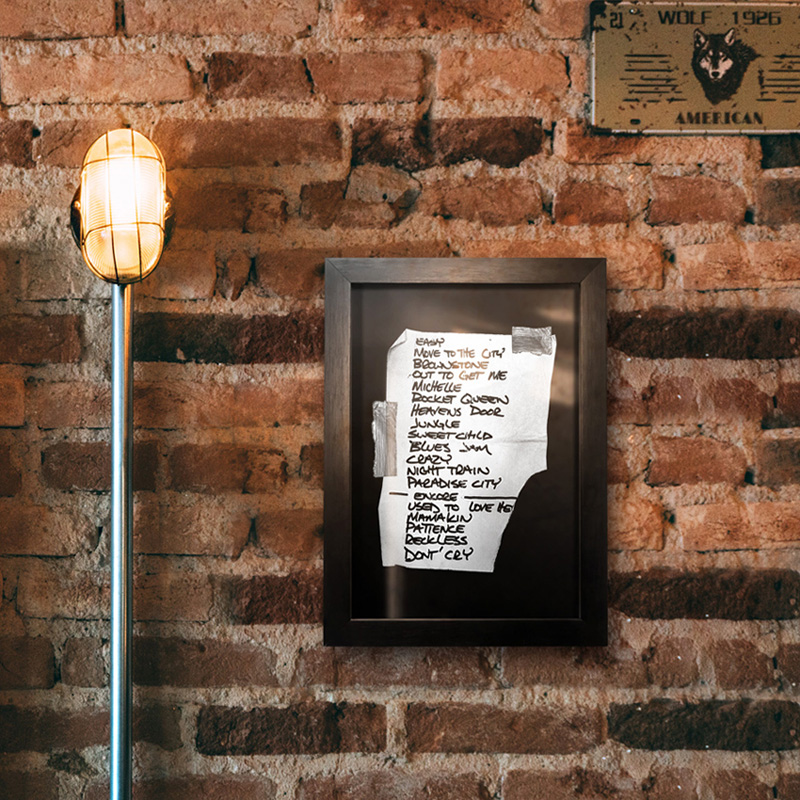 21 WOLF 1926
AMERICAN
EASY
MOVE TO THE CITY
BROWNSTONE
OUT TO GET ME
MICHELLE
ROCKET QUEEN
HEAVENS DOOR
JUNGLE
SWEET CHILD
BLUES JAM
CRAZY
NIGHT TRAIN
PARADISE CITY
ENCORE
USED TO LOVE HE
MAMAKIN
PATIENCE
RECKLESS
DONT' CRY